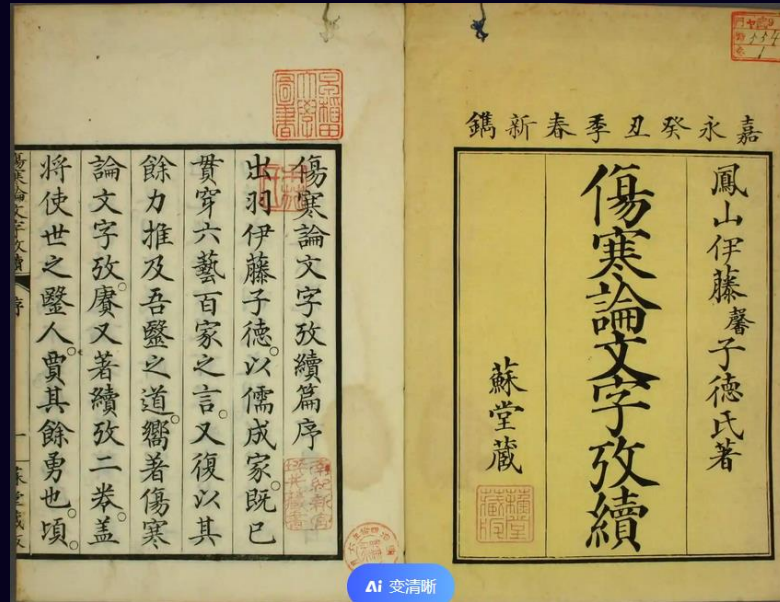 嘉永癸丑季春新鐫
鳳山伊藤馨子德氏著
傷寒論文字攷續
蘇堂蔵
傷寒論文字攷續篇序
出羽伊藤子德。以儒成家。既已
貫穿六藝百家之言。又復以其
餘力推及吾毉之道。嚮著傷寒
論文字攷。賡又著續攷二卷。蓋
將使世之毉人。賈其餘勇也。頃
傷寒論文字攷續
序
一
蘇堂蔵版
早稲田大學圖書
554
1
Ai 变清晰